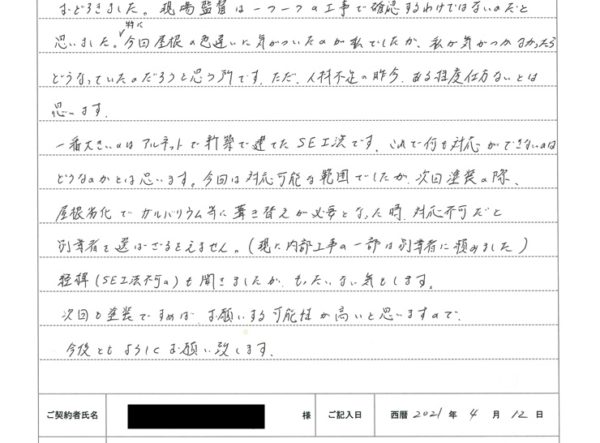 おどろきました。現場監督は一つ一つの工事で確認するわけではないのだと
思いました。特に今回屋根の色違いに気がついたのが私でしたが、私が気がつかなかったら
どうなっていたのだろうと思う所です。ただ、人材不足の昨今、ある程度仕方ないとは
思います。
一番大きいのはアルネットで新築で建てたSE工法です。これで何も対応ができないのは
どうなのかとは思います。今回は対応可能な範囲でしたが、次回塗装の際、
屋根劣化でガルバリウム等に葺き替えが必要となった時、対応不可だと
別業者を選ばざるとえません。(現に内部工事の一部は別業者に頼みました)
経緯(SE工法不可の)も聞きましたが、もったいない気もします。
次回も塗装ですめば、お願いする可能性が高いと思いますので、
今後ともよろしくお願い致します。
ご契約者氏名 様 ご記入日 西暦 2021 年 4 月 12 日